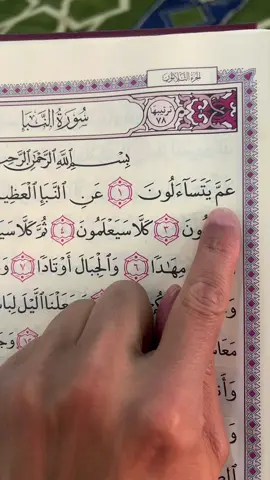 الجزء الثلاثون
سُورَةُ النَّبَإِ
ترتيبها ٧٨
بِسْمِ اللَّهِ الرَّحْمَٰنِ الرَّحِي
عَمَّ يَتَسَآءَلُونَ ١ عَنِ النَّبَإِ الْعَظِي
ونَ ٣ كَلَّا سَيَعْلَمُونَ ٤ ثُمَّ كَلَّا سَيَ
مِهَٰدًا ٦ وَالْجِبَالَ أَوْتَادًا ٧ وَ
عَلْنَا اللَّيْلَ لِبَا
مَعَا